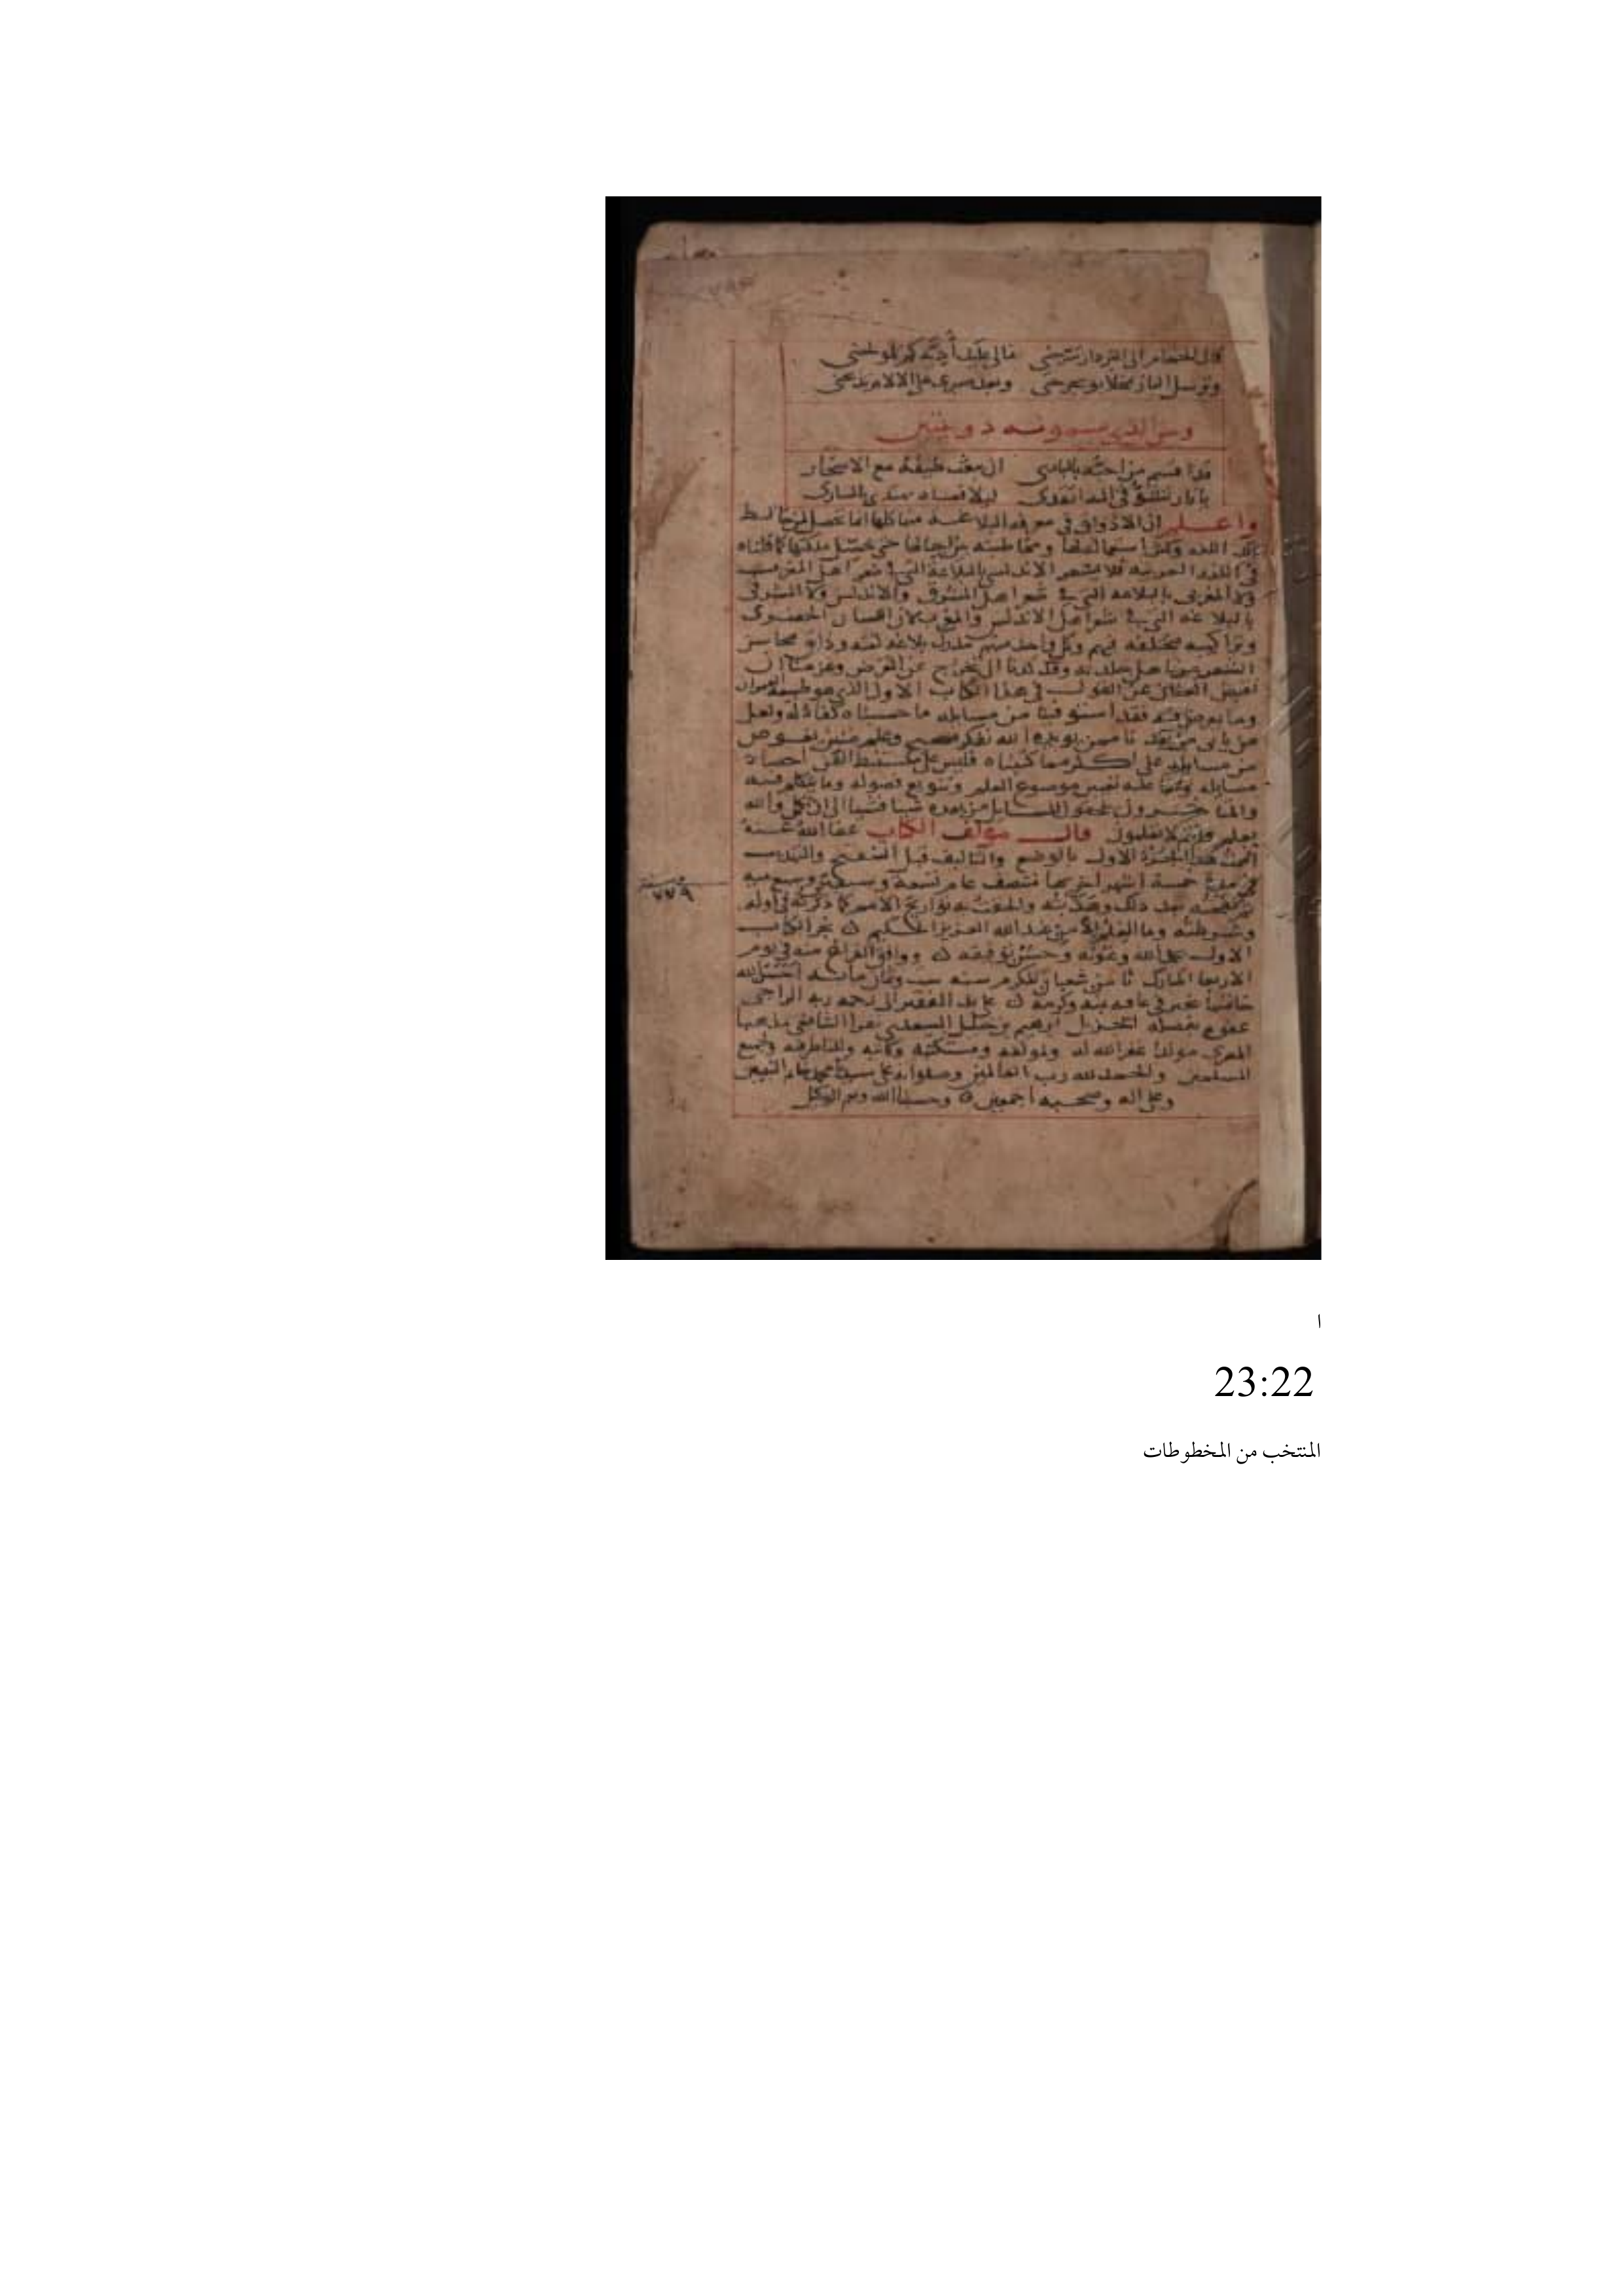 ومن الذي يسمونه دوبيتين
واعلم ان الاذواق في معرفه البلاغه كلها انما تحصل لمن خالط
تلك اللغه وكثر استعماله لها ومخاطبته بين اجيالها حتى يحصل ملكتها كما قلناه
في اللغه العربيه فلا يشعر الاندلسي بالبلاغه التي في شعر اهل المغرب
ولا المغربي بالبلاغه التي في شعر اهل المشرق والاندلس ولا المشرقي
بالبلاغه التي في شعر اهل الاندلس والمغرب لان اللسان الحضري
وتراكيبه مختلفه فيهم وكل واحد منهم مدرك بلاغه لغته وذائق محاسن
الشعر من اهل جلدته وقد كدنا ان نخرج عن الغرض وعزمنا ان
نقبض العنان عن القول في هذا الكتاب الاول الذي هو طبيعه العمران
وما يعرض فيه فقد استوفينا من مسايله ما حسبناه كفاء له ولعل
من ياتي من بعدنا ممن يويده الله بفكر صحيح وعلم مبين يغوص
من مسايله على اكثر مما كتبناه فليس على مستنبط الفن احصاء
مسايله وانما عليه تعيين موضوع العلم وتنويع فصوله وما يتكلم فيه
والمتاخرون يلحقون المسايل من بعده شيا فشيا الى ان يكمل والله
يعلم وانتم لا تعلمون قال مولف الكتاب عفا الله عنه
اتممت هذا الجزء الاول بالوضع والتاليف قبل التنقيح والتهذيب
في مدة خمسة اشهر اخرها منتصف عام تسعة وسبعين وسبع ميه
ثم نقحته بعد ذلك وهذبته والحقت به تواريخ الامم كما ذكرته في اوله
وشرطته وما العلم الا من عند الله العزيز الحكيم نجز الكتاب
الاول بحمد الله وعونه وحسن توفيقه ووافق الفراغ منه في يوم
الاربعا المبارك ثامن شعبان المكرم سنه ست وثمان مائه احسن الله
خاتمتها بخير في عافيه بمنه وكرمه على يد الفقير الى رحمه ربه الراجي
عفوه بفضله ابرهيم بن خليل السعدي الشافعي مذهبا
المصري مولدا غفر الله له ولمولفه ومستكتبه وكاتبه وللناظر فيه ولجميع
المسلمين والحمد لله رب العالمين وصلواته على سيدنا محمد خاتم النبيين
وعلى اله وصحبه اجمعين وحسبنا الله ونعم الوكيل
٧٧٩
ا
23:22
المنتخب من المخطوطات